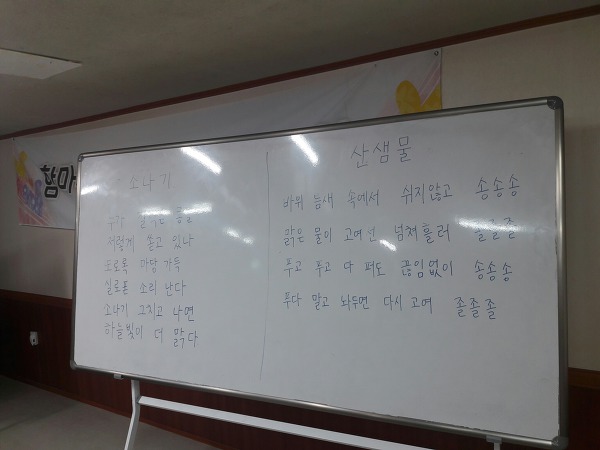 함마
소나기
누가
저렇게 쏟고 있나
또로록 마당 가득
실로폰 소리 난다
소나기 그치고 나면
하늘빛이 더 맑다
산샘물
바위 틈새 속에서 쉬지않고 송송송
맑은 물이 고여선 넘쳐흘러 졸졸졸
푸고 푸고 다 퍼도 끊임없이 송송송
푸다 말고 놔두면 다시 고여 졸졸졸